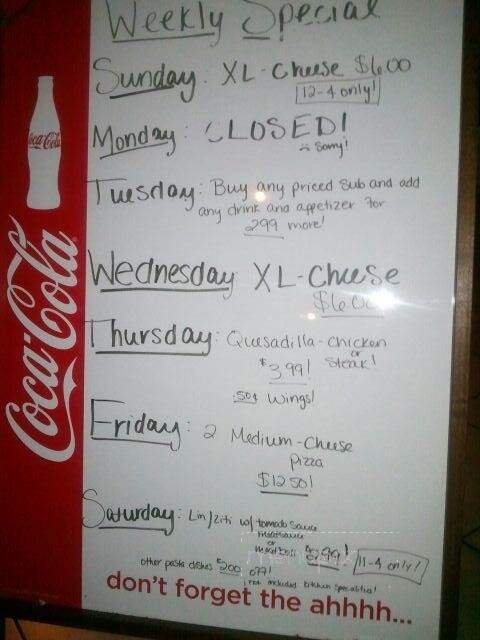 Weekly Special
Sunday: XL-Cheese $6.00
12-4 only!
Monday: CLOSED!
Sorry!
Tuesday: Buy any priced sub and add
any drink and appetizer for
2.99 more!
Wednesday XL-Cheese
$6.00
Thursday: Quesadilla-chicken
or
$3.99! Steak!
.50¢ Wings!
Friday: 2 Medium-Cheese
Pizza
$12.50!
Saturday: Lin/Ziti w/ tomato sauce
meatsauce
or
meatball $5.99! 11-4 only!
other pasta dishes $2.00 off!
not included kitchen specialties!
don't forget the ahhhh...
Coca-Cola
Coca-Cola